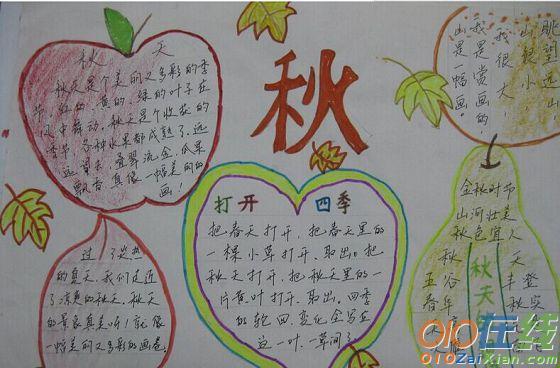 秋 天
秋天是个美丽又多彩的季
节,红的、黄的、绿的叶子在
风中舞动。秋天是个收获的
季节,各种水果都成熟了。远
远望去,叠翠流金,瓜果
飘香,真像一幅美丽的
画!
秋
眺望远山,
山很小,
我很大,
我是赏画的,
山是一幅画。
过了炎热
的夏天,我们走近
了凉爽的秋天,秋天
的景色真美呀!就像
一幅美丽又多彩的画卷。
打开 四季
把春天打开,把春天里的
一棵小草打开,取出。把
秋天打开,把秋天里的一
片黄叶打开,取出。四季
的轮回变化会写在
这一叶一草间了。
金秋时节
山河壮美
秋色宜人
秋天
秋 天
五谷 丰登
春华 秋实
010在线
010ZaiXian.com